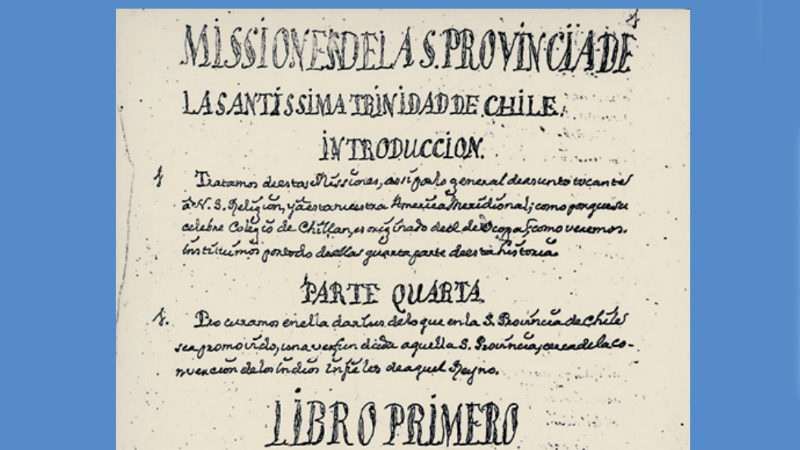 MISSIONES DE LA S. PROVINCIA DE
LA SANTISSIMA TRINIDAD DE CHILE.
INTRODUCCION.
Tratamos de estas Missiones, assi por lo general de asunto tocante
a N. S. Religion, y à esta nuestra America Meridional; como porque su
celebre Colegio de Chillan, es originado de el de Ocopa; como veremos.
instituimos por todo de ellas quarta parte de esta historia.
PARTE QUARTA.
Procuramos en ella dar luz de lo que en la S. Provincia de Chile
se a promovido, una vez fundada aquella S. Provincia, cerca de la co-
nversion de los Indios Infieles de aquel Reyno.
LIBRO PRIMERO